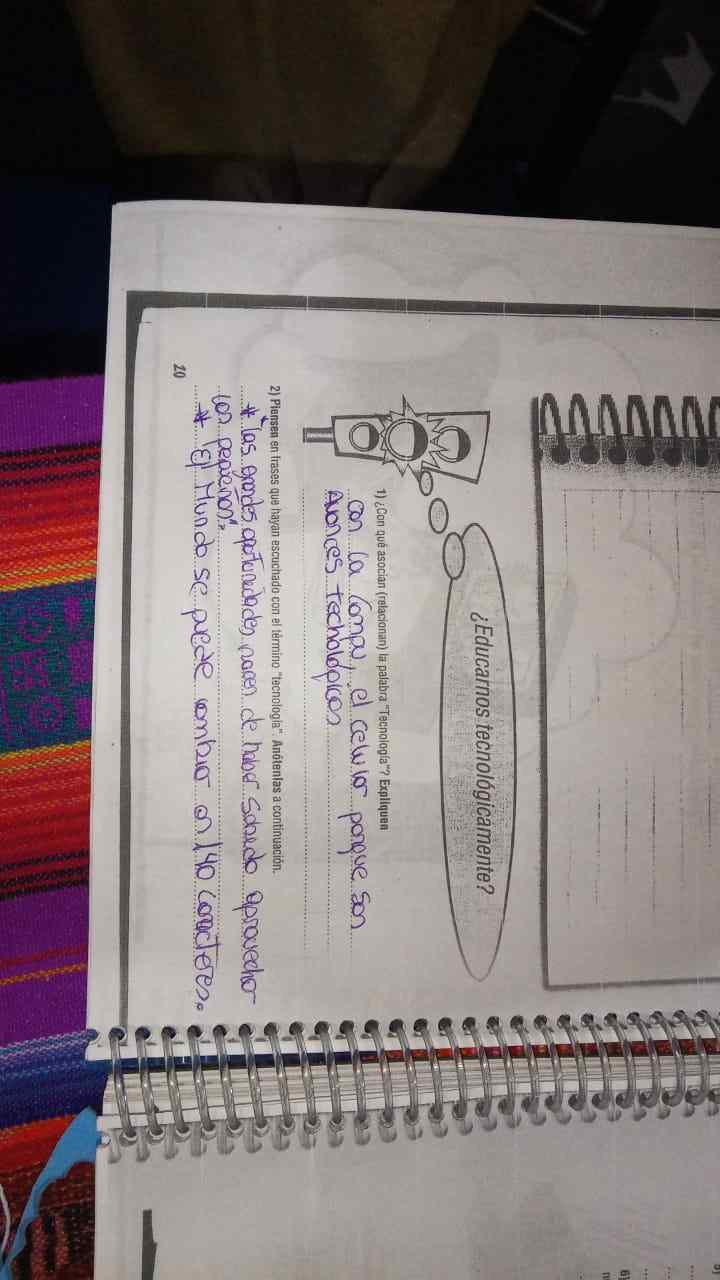 ¿Educarnos tecnológicamente?
1) ¿Con qué asocian (relacionan) la palabra "Tecnología"? Expliquen
con la Compu, el celular porque son
Avances tecnológicos
2) Piensen en frases que hayan escuchado con el término "tecnología". Anótenlas a continuación.
* "las grandes oportunidades nacen de haber Sabido aprovechar
las pequeñas".
* "El Mundo se puede cambiar en 140 Caracteres.
20